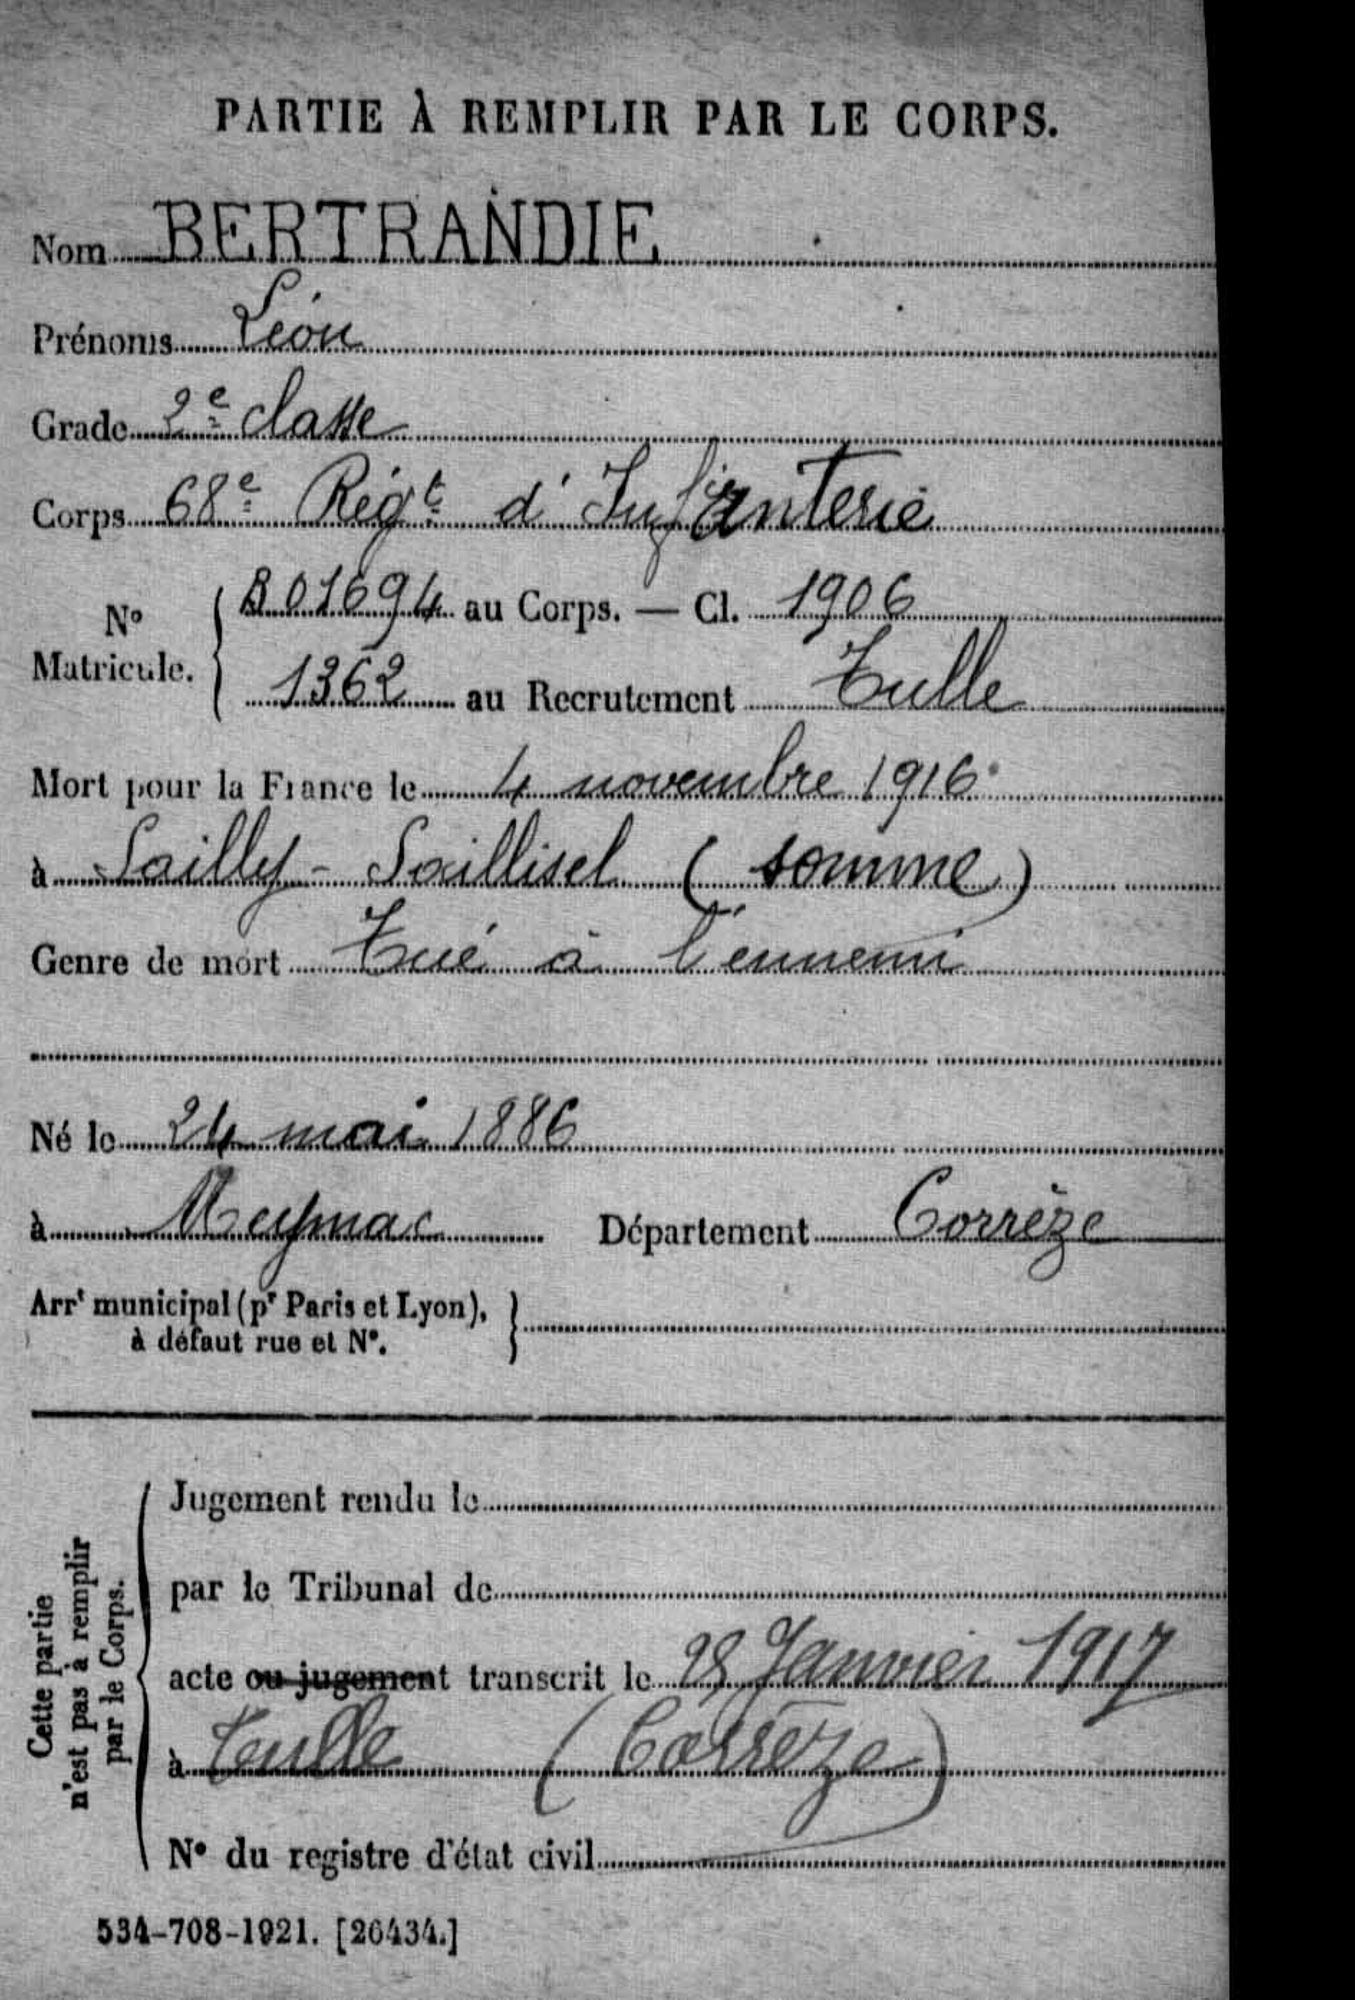 PARTIE À REMPLIR PAR LE CORPS.
Nom BERTRANDIE
Prénoms Léon
Grade 2e classe
Corps 68e Régt d'Infanterie
N° Matricule. { B01694 au Corps. — Cl. 1906
1362 au Recrutement Tulle
Mort pour la France le 4 novembre 1916
à Sailly-Saillisel (Somme)
Genre de mort Tué à l'ennemi
Né le 24 mai 1886
à Meymac Département Corrèze
Arrt municipal (pr Paris et Lyon), }
à défaut rue et N°.
Cette partie
n'est pas à remplir
par le Corps.
Jugement rendu le
par le Tribunal de
acte ou jugement transcrit le 28 Janvier 1917
à Tulle (Corrèze)
N° du registre d'état civil
534-708-1921. [26434.]